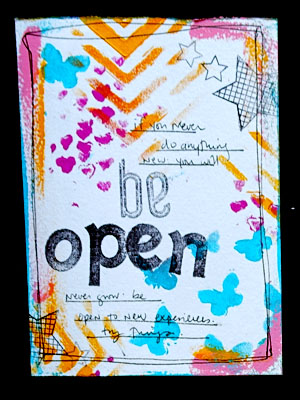 if you never
do anything
new you will
be
open
never grow. be
open to new experiences.
try things